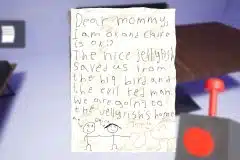 Dear mommy,
I am ok and Claire
is ok?
The nice jellyfish
saved us from
the big bird and
the evil red man
we are going to
the jellyfishs home